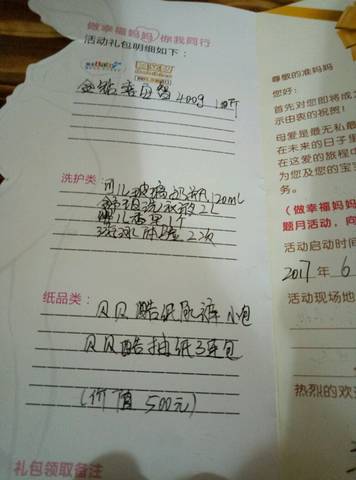 做幸福妈妈 你我同行
活动礼包明细如下：
400g 1听
洗护类：
婴儿玻璃奶瓶 120ml
2L
婴儿香皂1个
游泳体验2次
纸品类：
贝贝酷纸尿裤小包
贝贝酷抽纸3连包
(价值 500元)
礼包领取备注
尊敬的准妈妈
您好：
首先对您即将成
示由衷的祝贺！
母爱是最无私最
在未来的日子里
在这爱的旅程中
为您及您的宝
务。
(做幸福妈妈
题月活动，向
活动启动时间
2017年6
活动现场地
热烈的欢